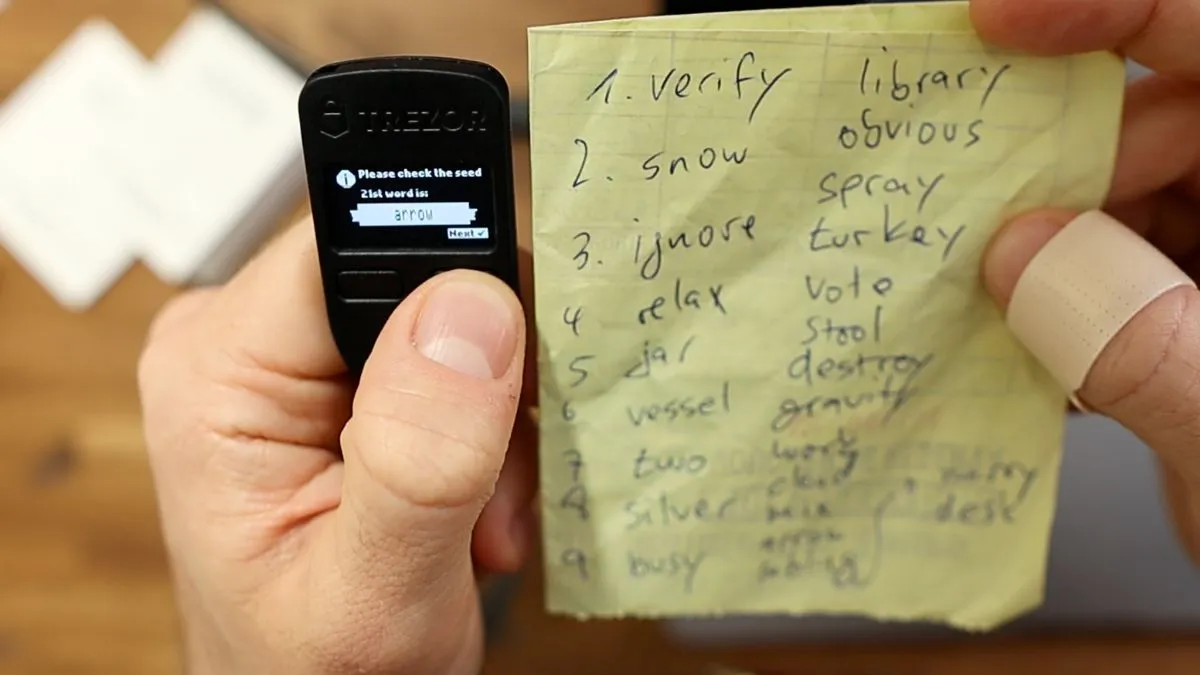 TREZOR
Please check the seed
21st word is:
arrow
Next ✓
1. verify library
obvious
2. snow
spray
3. ignore turkey
4 relax vote
stool
5 jar destroy
6 vessel gravity
7 two work
silver desk
9 busy arrow